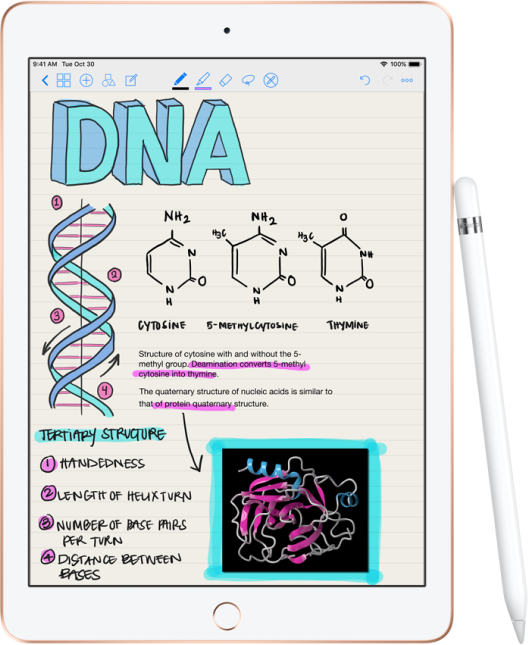 9:41 AM Tue Oct 30
100%
DNA
1
2
3
4
NH2
N
O
N
H
CYTOSINE
NH2
H3C
N
O
N
H
5-METHYLCYTOSINE
O
H3C
NH
O
N
H
THYMINE
Structure of cytosine with and without the 5-
methyl group. Deamination converts 5-methyl
cytosine into thymine.
The quaternary structure of nucleic acids is similar to
that of protein quaternary structure.
TERTIARY STRUCTURE
1 HANDEDNESS
2 LENGTH OF HELIX TURN
3 NUMBER OF BASE PAIRS
PER TURN
4 DISTANCE BETWEEN
BASES